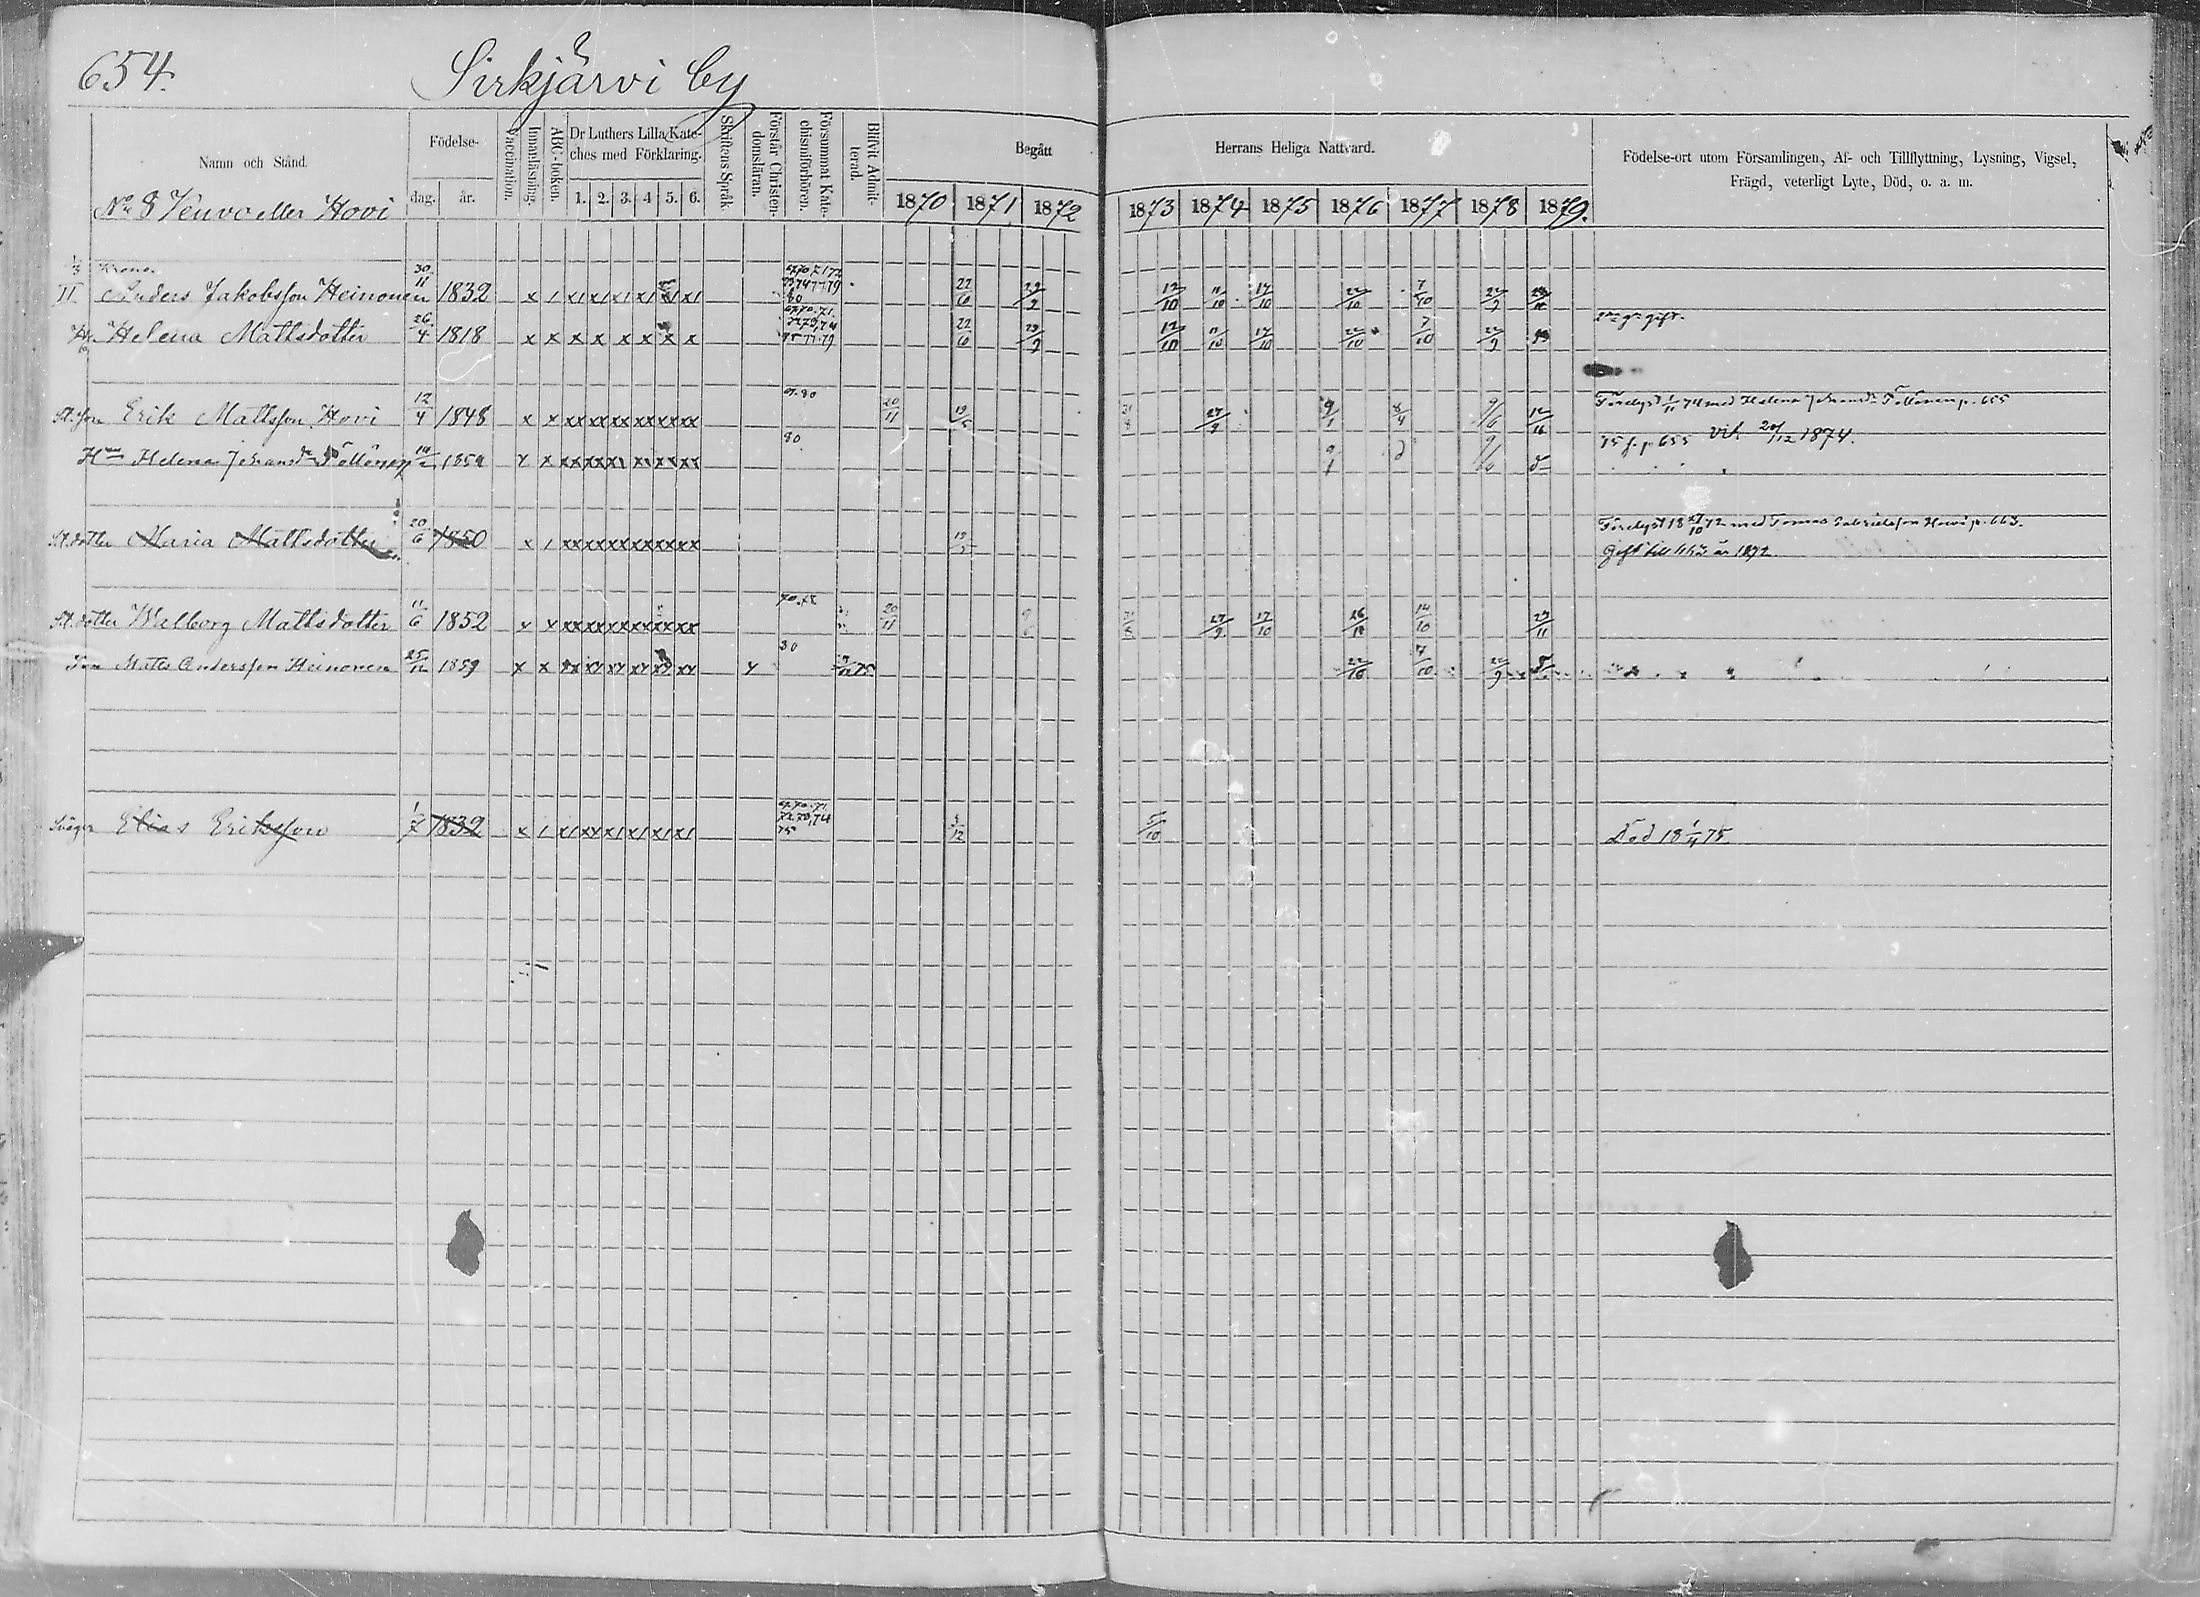 654.
Sirkjärvi by
Namn och Stånd.
Födelse-
dag.
år.
Vaccination.
Innanläsning.
ABC-boken.
Dr Luthers Lilla Kate-
ches med Förklaring.
1. 2. 3. 4 5. 6.
Skriftens Språk
Förstår Christen-
domsläran.
Försummat Kate-
chismiförhören.
Blifvit Admit-
terad.
Begått
Herrans Heliga Nattvard.
1870 1871 1872 1873 1874 1875 1876 1877 1878 1879.
Födelse-ort utom Församlingen, Af- och Tillflyttning, Lysning, Vigsel,
Frägd, veterligt Lyte, Död, o. a. m.
No 8 Venvo eller Hovi
Krono.
Anders Jakobsson Heinonen 30/11 1832 x / x/ x/ x/ x/ x/ 22/6 29/9 12/10 11/10 17/10 22/10 7/10 22/9
Helena Mattsdotter 26/4 1818 x x x x x x x x 22/6 29/9 12/10 11/10 17/10 22/10 7/10 22/9
St. son Erik Mattsson Hovi 12/4 1848 x x xx xx xx xx xx xx 20/11 19/5 27/9 9/1 8/4 9/6 Förelyst 1/11 74 med Helena Johansdr Föllönen p. 655
Hru Helena Johansdr Föllönen x x xx xx xx xx xx 80 9/1 9/6 f. p. 655 vid 20/12 1874.
St. dotter Maria Mattsdotter 20/6 1850 x / xx xx xx xx xx xx 19/5 Förelyst 18 27/10 72 med Tomas Gabrielsson Howi p. 663.
Gift till 663 år 1872
St. dotter Walborg Mattsdotter 11/6 1852 x x xx xx xx xx xx xx 70.78 20/11 27/9 17/10 14/10 23/11
Son Matts Andersson Heinonen 25/12 1859 x x xx xx xx xx xx xx 80 22/10 7/10 22/9
Svåger Elias Eriksson 1/7 1832 x / x/ xx x/ x/ x/ x/ 5/10 Död 18 1/4 75.